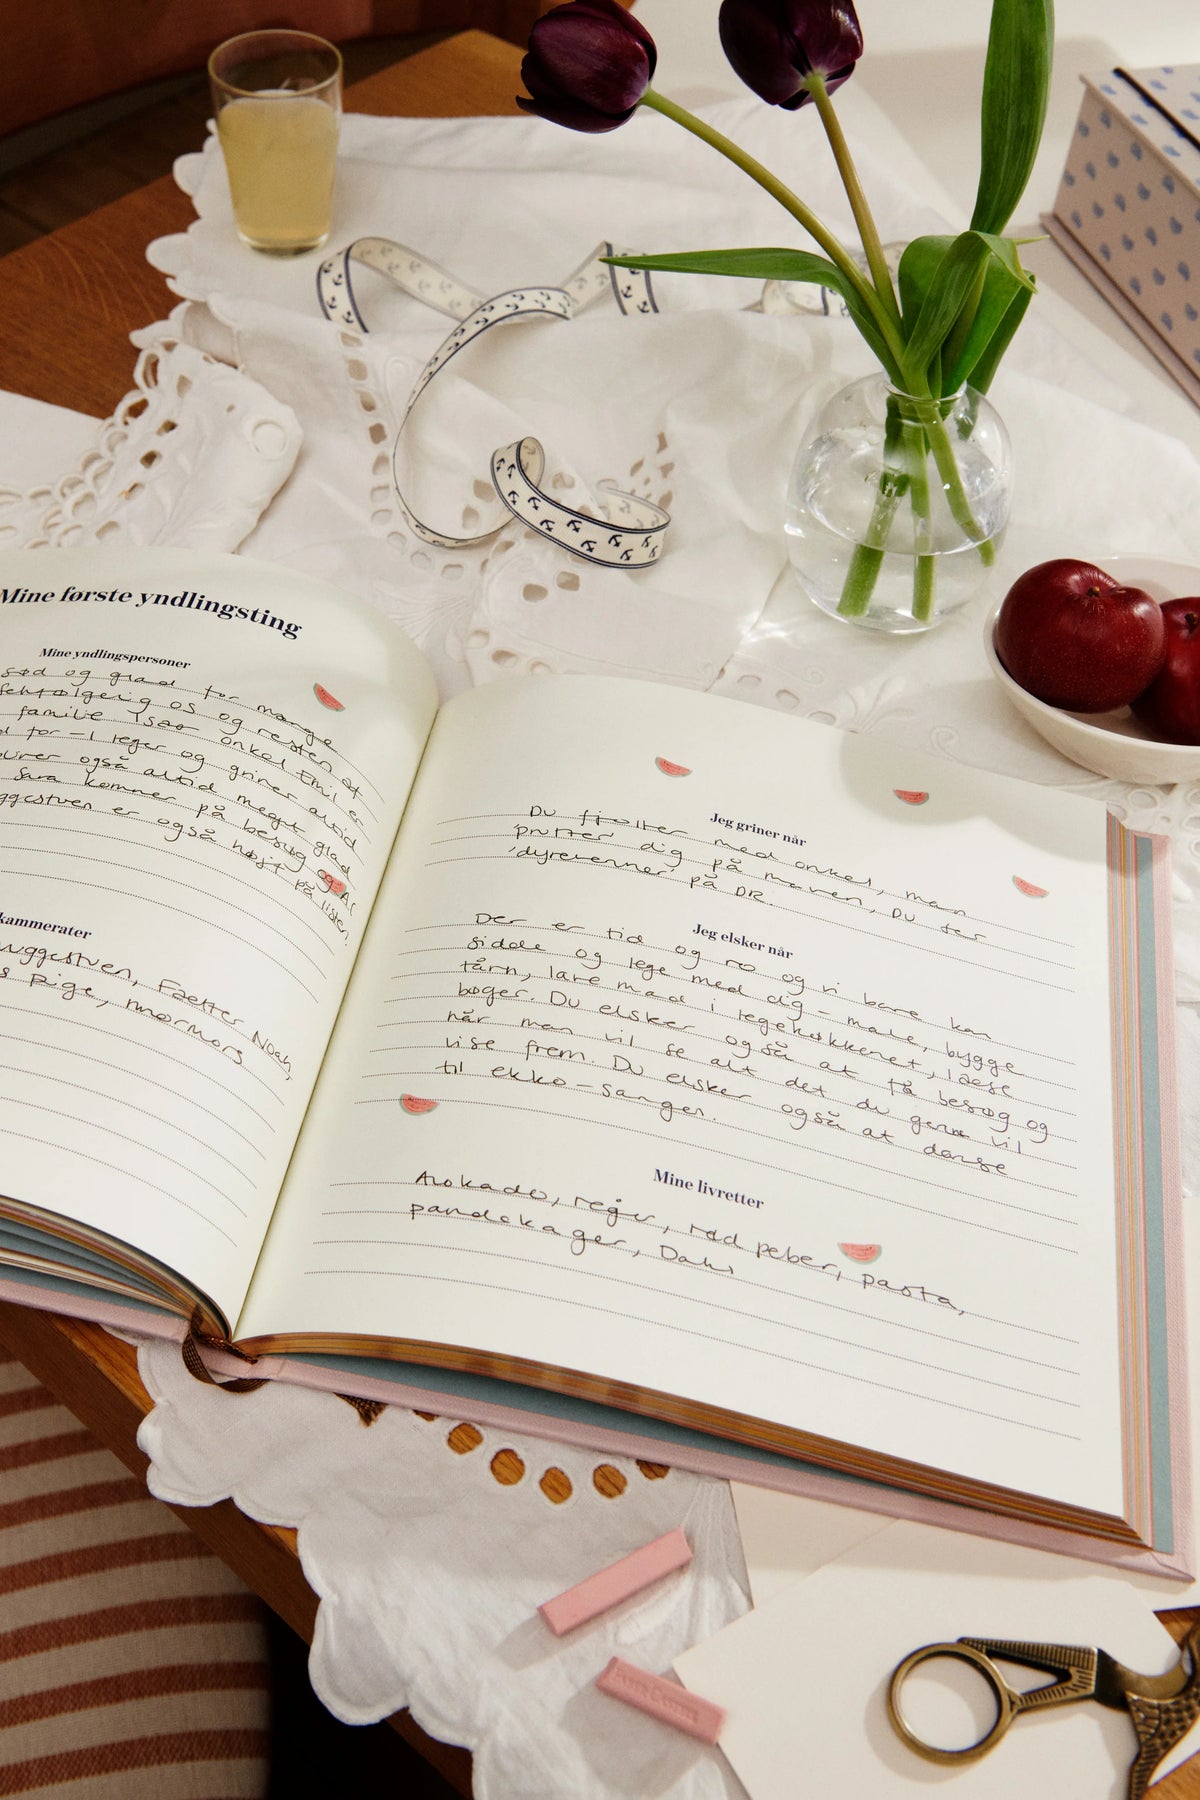 Mine første yndlingsting
Mine yndlingspersoner
sød og glad for mange
selvfølgelig os og resten af
familie især onkel Emil er
for – I leger og griner altid
også altid meget glad
Sara kommer på besøg og
er også højt på listen.
kammerater
Fætter Noah,
Pige, mormors
Jeg griner når
Du fjoller med onkel, man
prutter dig på maven, Du ser
'dyrevenner' på DR.
Jeg elsker når
Der er tid og ro og vi bare kan
sidde og lege med dig – male, bygge
tårn, lave mad i legekøkkenet, læse
bøger. Du elsker også at få besøg og
når man vil se alt det du gerne vil
vise frem. Du elsker også at danse
til ekko-sangen.
Mine livretter
Avokado, rejer, rød peber, pasta,
pandekager, Dahl